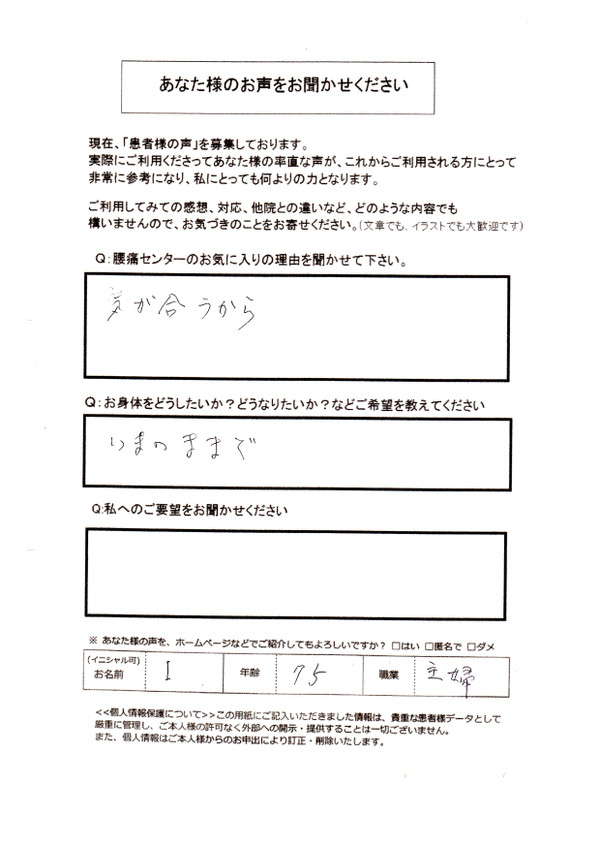 あなた様のお声をお聞かせください
現在、「患者様の声」を募集しております。
実際にご利用くださってあなた様の率直な声が、これからご利用される方にとって
非常に参考になり、私にとっても何よりの力となります。
ご利用してみての感想、対応、他院との違いなど、どのような内容でも
構いませんので、お気づきのことをお寄せください。(文章でも、イラストでも大歓迎です)
Q:腰痛センターのお気に入りの理由を聞かせて下さい。
気が合うから
Q:お身体をどうしたいか?どうなりたいか?などご希望を教えてください
いまのままで
Q:私へのご要望をお聞かせください
※ あなた様の声を、ホームページなどでご紹介してもよろしいですか? □はい □匿名で □ダメ
(イニシャル可)
お名前 I 年齢 75 職業 主婦
<<個人情報保護について>>この用紙にご記入いただきました情報は、貴重な患者様データとして
厳重に管理し、ご本人様の許可なく外部への開示・提供することは一切ございません。
また、個人情報はご本人様からのお申出により訂正・削除いたします。